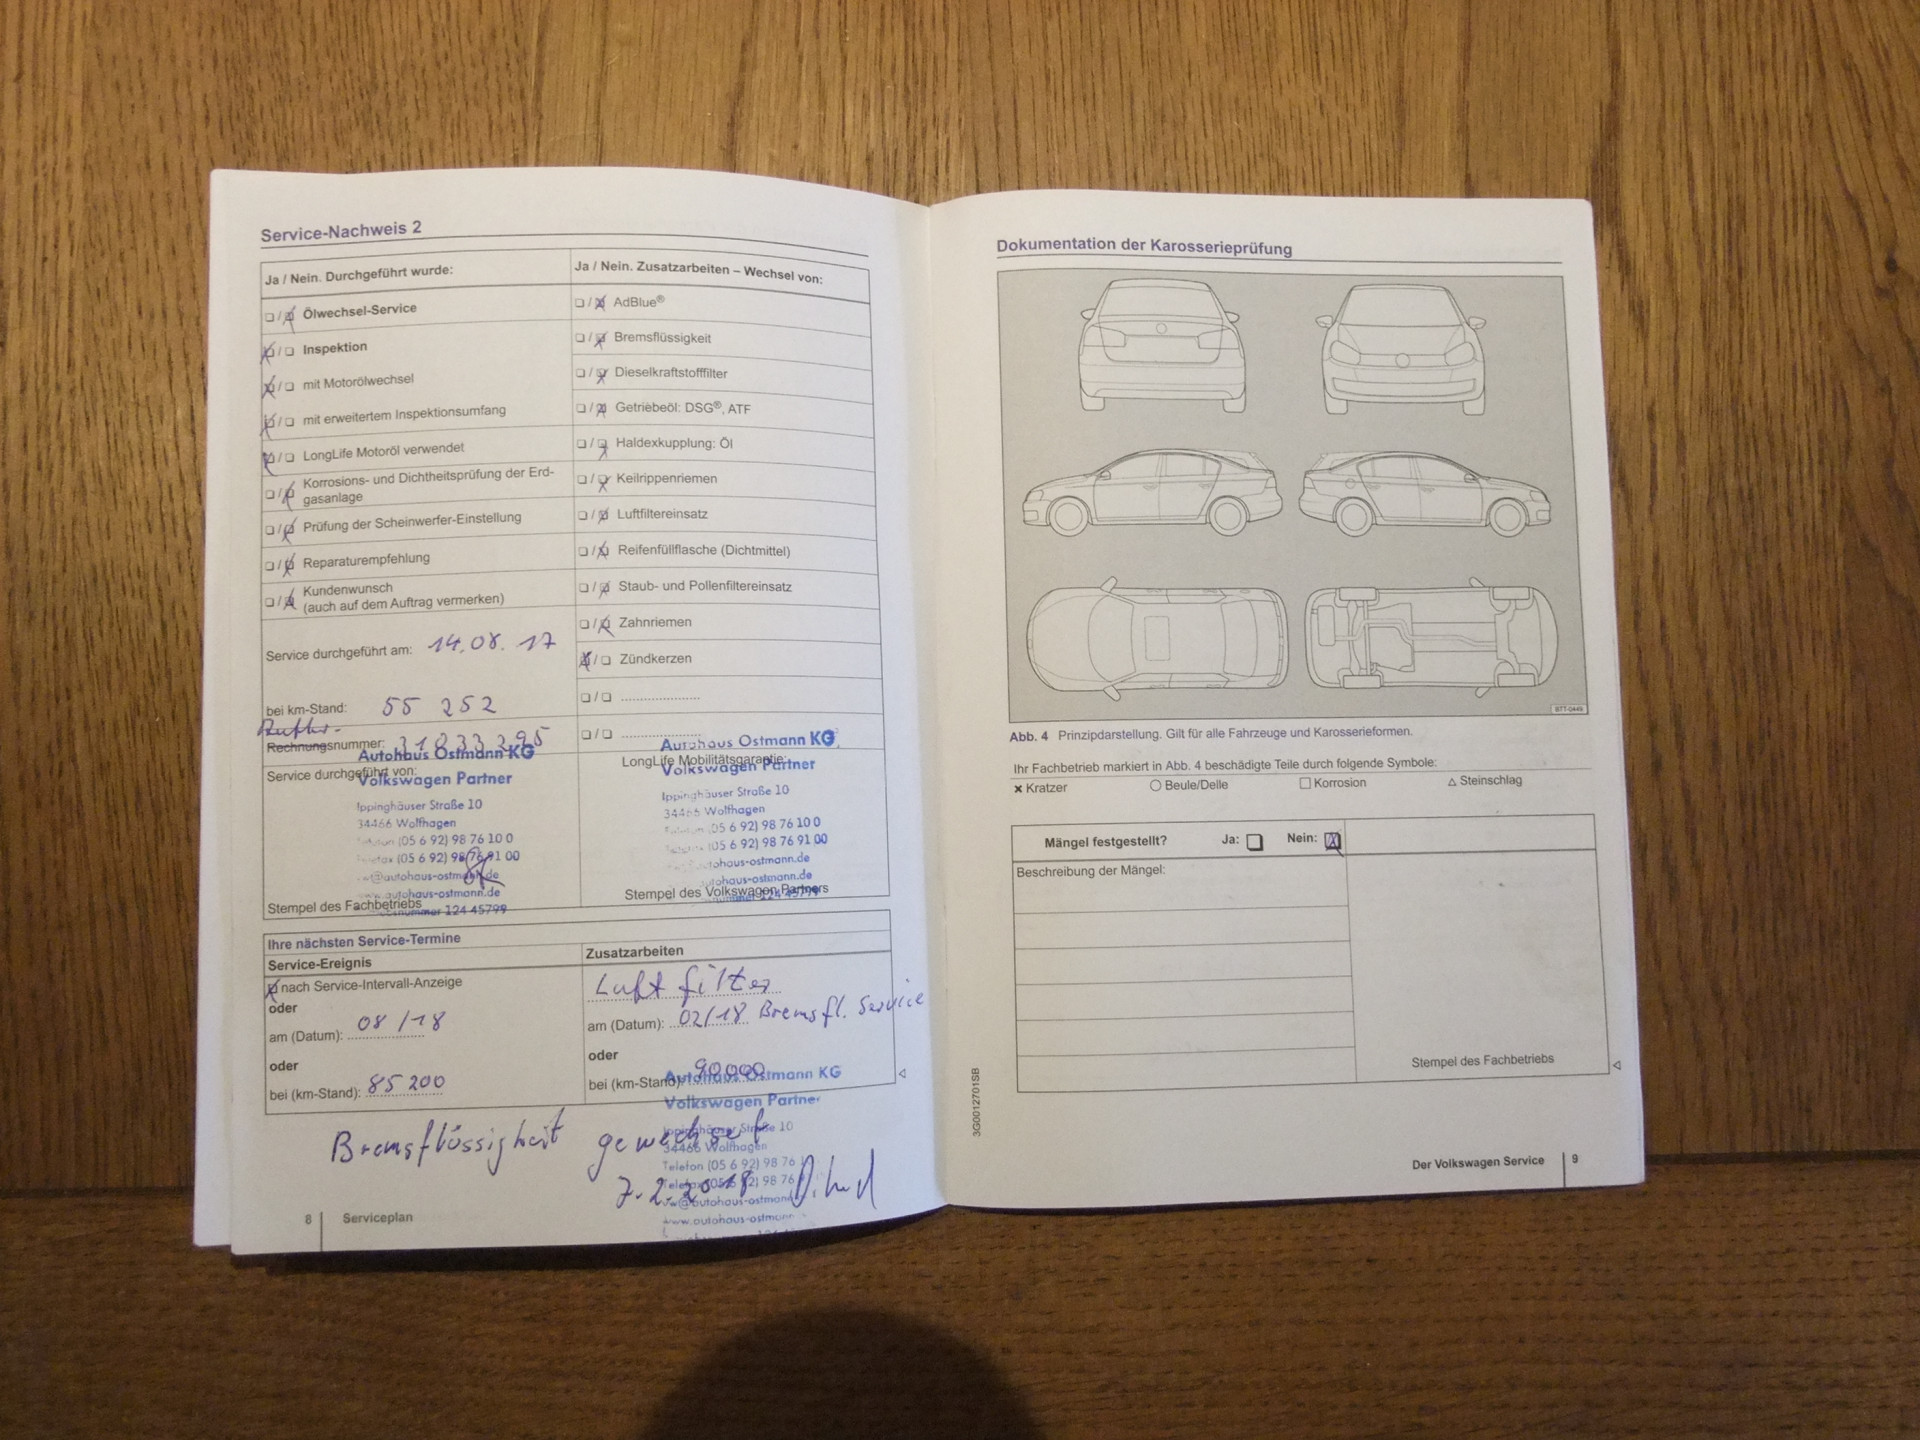 Service-Nachweis 2
Ja / Nein. Durchgeführt wurde:
❏ / ❏ Ölwechsel-Service
❏ / ❏ Inspektion
❏ / ❏ mit Motorölwechsel
❏ / ❏ mit erweitertem Inspektionsumfang
❏ / ❏ LongLife Motoröl verwendet
❏ / ❏ Korrosions- und Dichtheitsprüfung der Erd-
gasanlage
❏ / ❏ Prüfung der Scheinwerfer-Einstellung
❏ / ❏ Reparaturempfehlung
❏ / ❏ Kundenwunsch
(auch auf dem Auftrag vermerken)
Service durchgeführt am: 14.08.17
bei km-Stand: 55 252
Rechnungsnummer: 31833295
Service durchgeführt von:
Autohaus Ostmann KG
Volkswagen Partner
Ippinghäuser Straße 10
34466 Wolfhagen
Telefon (05 6 92) 98 76 10 0
Telefax (05 6 92) 98 76 91 00
vw@autohaus-ostmann.de
www.autohaus-ostmann.de
124 45799
Stempel des Fachbetriebs
Ja / Nein. Zusatzarbeiten – Wechsel von:
❏ / ❏ AdBlue®
❏ / ❏ Bremsflüssigkeit
❏ / ❏ Dieselkraftstofffilter
❏ / ❏ Getriebeöl: DSG®, ATF
❏ / ❏ Haldexkupplung: Öl
❏ / ❏ Keilrippenriemen
❏ / ❏ Luftfiltereinsatz
❏ / ❏ Reifenfüllflasche (Dichtmittel)
❏ / ❏ Staub- und Pollenfiltereinsatz
❏ / ❏ Zahnriemen
❏ / ❏ Zündkerzen
❏ / ❏ ......................
❏ / ❏ ......................
LongLife Mobilitätsgarantie:
Autohaus Ostmann KG
Volkswagen Partner
Ippinghäuser Straße 10
34466 Wolfhagen
Telefon (05 6 92) 98 76 10 0
Telefax (05 6 92) 98 76 91 00
autohaus-ostmann.de
autohaus-ostmann.de
124 45799
Stempel des Volkswagen Partners
Ihre nächsten Service-Termine
Service-Ereignis
nach Service-Intervall-Anzeige
oder
am (Datum): 08/18
oder
bei (km-Stand): 85 200
Zusatzarbeiten
Luftfilter
am (Datum): 02/18 Bremsfl. Service
oder
bei (km-Stand): 90000
Autohaus Ostmann KG
Volkswagen Partner
Ippinghäuser Straße 10
34466 Wolfhagen
Telefon (05 6 92) 98 76
Telefax (05 6 92) 98 76
vw@autohaus-ostmann
www.autohaus-ostmann
Bremsflüssigkeit gewechselt
7.2.2018
8 Serviceplan
Dokumentation der Karosserieprüfung
B7T-0449
Abb. 4 Prinzipdarstellung. Gilt für alle Fahrzeuge und Karosserieformen.
Ihr Fachbetrieb markiert in Abb. 4 beschädigte Teile durch folgende Symbole:
× Kratzer ○ Beule/Delle □ Korrosion △ Steinschlag
Mängel festgestellt? Ja: ❏ Nein: ❏
Beschreibung der Mängel:
Stempel des Fachbetriebs
3G0012701SB
Der Volkswagen Service 9